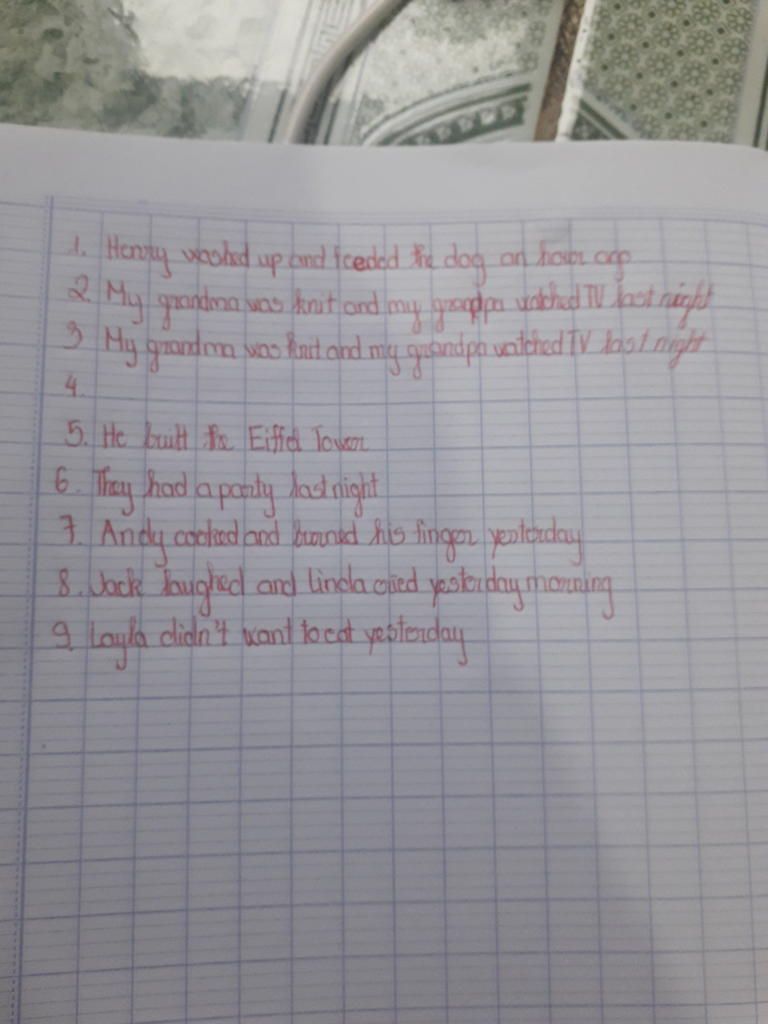 1. Henry washed up and feeded the dog an hour ago
2. My grandma was knit and my grandpa watched TV last night
3 My grandma was knit and my grandpa watched TV last night
4.
5. He built the Eiffel Tower
6. They had a party last night
7. Andy cooked and burned his finger yesterday
8. Jack laughed and Linda cried yesterday morning
9. Layla didn't want to eat yesterday